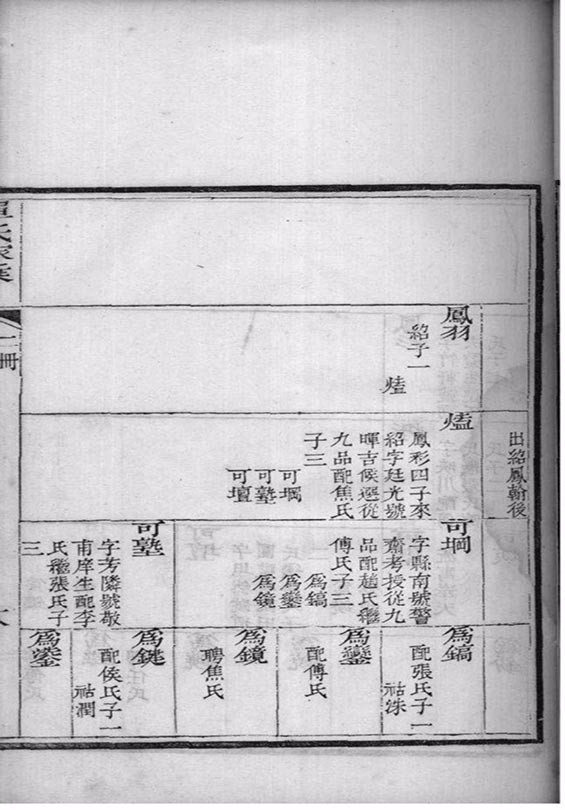 出紹鳳翰後
鳳羽
紹子一
熆
鳳彩四子來
紹字廷光號
暉吉候選從
九品配焦氏
子三
可堈
可墪
可壇
可堈
字縣南號警
齋考授從九
品配趙氏繼
傅氏子三
為鎬
為鑾
為鏡
可墪
字芳隣號敬
甫庠生配李
氏繼張氏子
三
為鎬
配張氏子一
祜洙
為鑾
配傅氏
為鏡
聘焦氏
為銚
配侯氏子一
祜潤
為鎣
單氏家乘
二冊